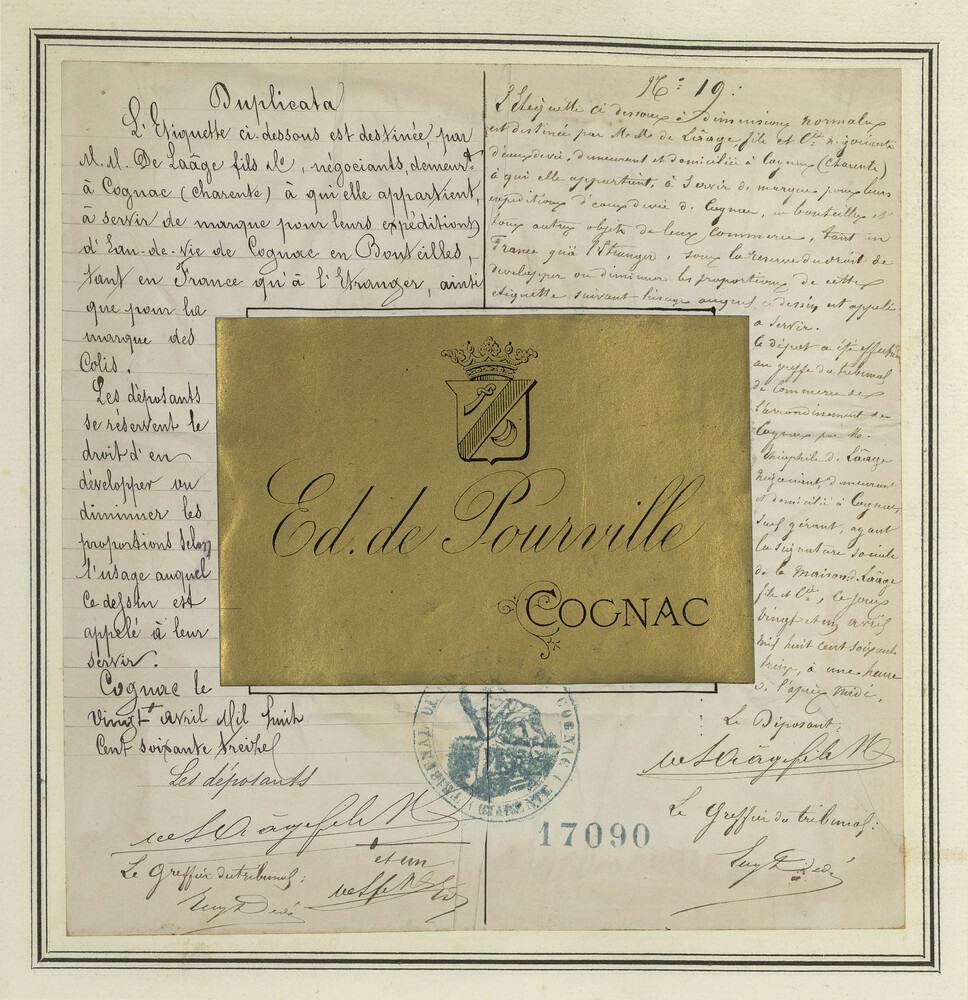 Duplicata
L'Etiquette ci-dessous est destinée, par
M.M. De Laâge fils & Cº, négociants, demeurt
à Cognac (charente) à qui elle appartient,
à servir de marque pour leurs expéditions
d'Eau-de-vie de Cognac en Bouteilles,
tant en France qu'à l'Etranger, ainsi
que pour la
marque des
Colis.
Les déposants
se réservent le
droit d'en
développer ou
diminuer les
proportions selon
l'usage auquel
ce dessin est
appelé à leur
servir.
Cognac le
vingt avril Mil huit
Cent soixante treize
Les déposants
Le Greffier du tribunal:
et un
Nº 19:
L'Etiquette ci dessous à dimensions normales
est destinée par M.M. de Laâge fils et Cie négociants
d'eaux de vie, demeurant et domiciliés à Cognac (Charente)
à qui elle appartient, à servir de marque pour leurs
expéditions d'eaux de vie de Cognac, en bouteilles et
tous autres objets de leur Commerce, tant en
France qu'à l'Etranger, sous la réserve du droit de
développer ou diminuer les proportions de cette
etiquette suivant l'usage auquel ce dessin est appelé
a servir.
Le dépôt a été effectué
au greffe du tribunal
de Commerce de
l'arrondissement de
Cognac par M.
Théophile de Laâge
négociant demeurant
et domicilié à Cognac,
gérant, ayant
la signature sociale
de la Maison de Laâge
fils et Cie, le jour
vingt et un avril
mil huit cent soixante
treize, à une heure
de l'après midi.
Le Déposant,
Le Greffier du tribunal:
Ed. de Pourville
COGNAC
TRIBUNAL DE COGNAC (CHARENTE)
17090